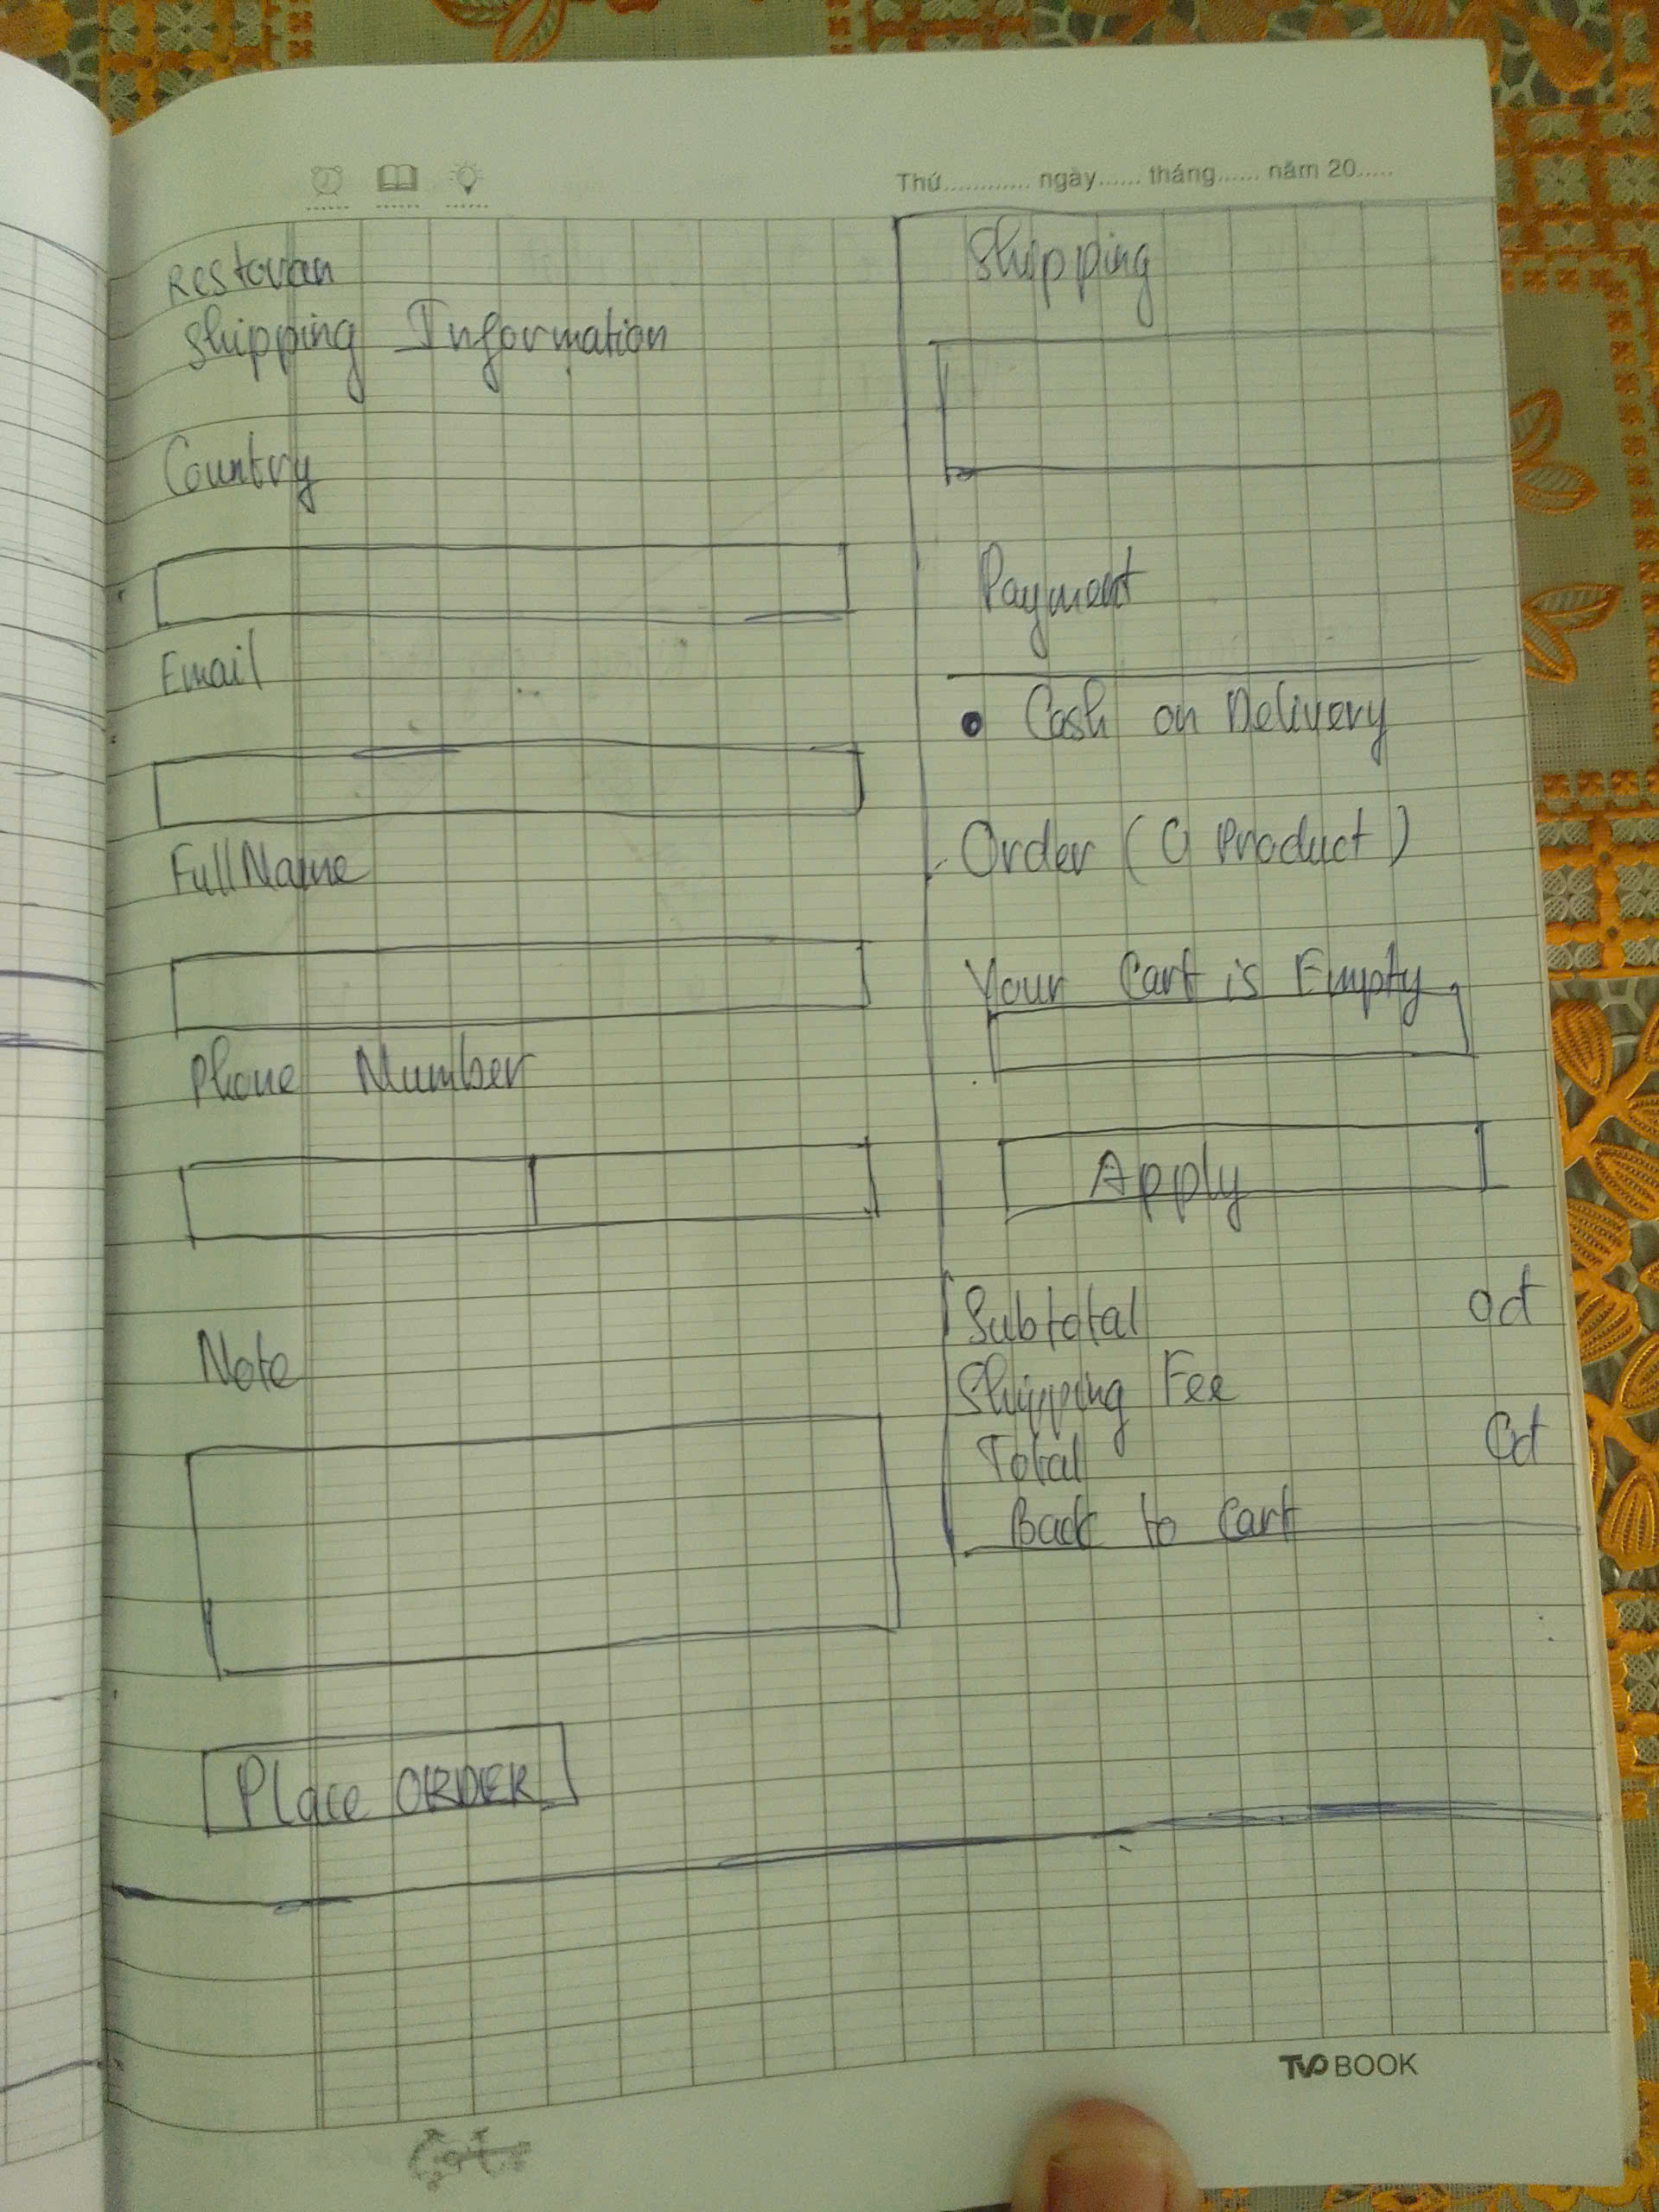 Thứ............ ngày...... tháng...... năm 20.....
Restoran
Shipping Information
Country
Email
FullName
Phone Number
Note
Place ORDER
Shipping
Payment
• Cash on Delivery
Order (0 Product)
Your Cart is Empty
Apply
Subtotal 0đ
Shipping Fee
Total 0đ
Back to Cart
TVO BOOK